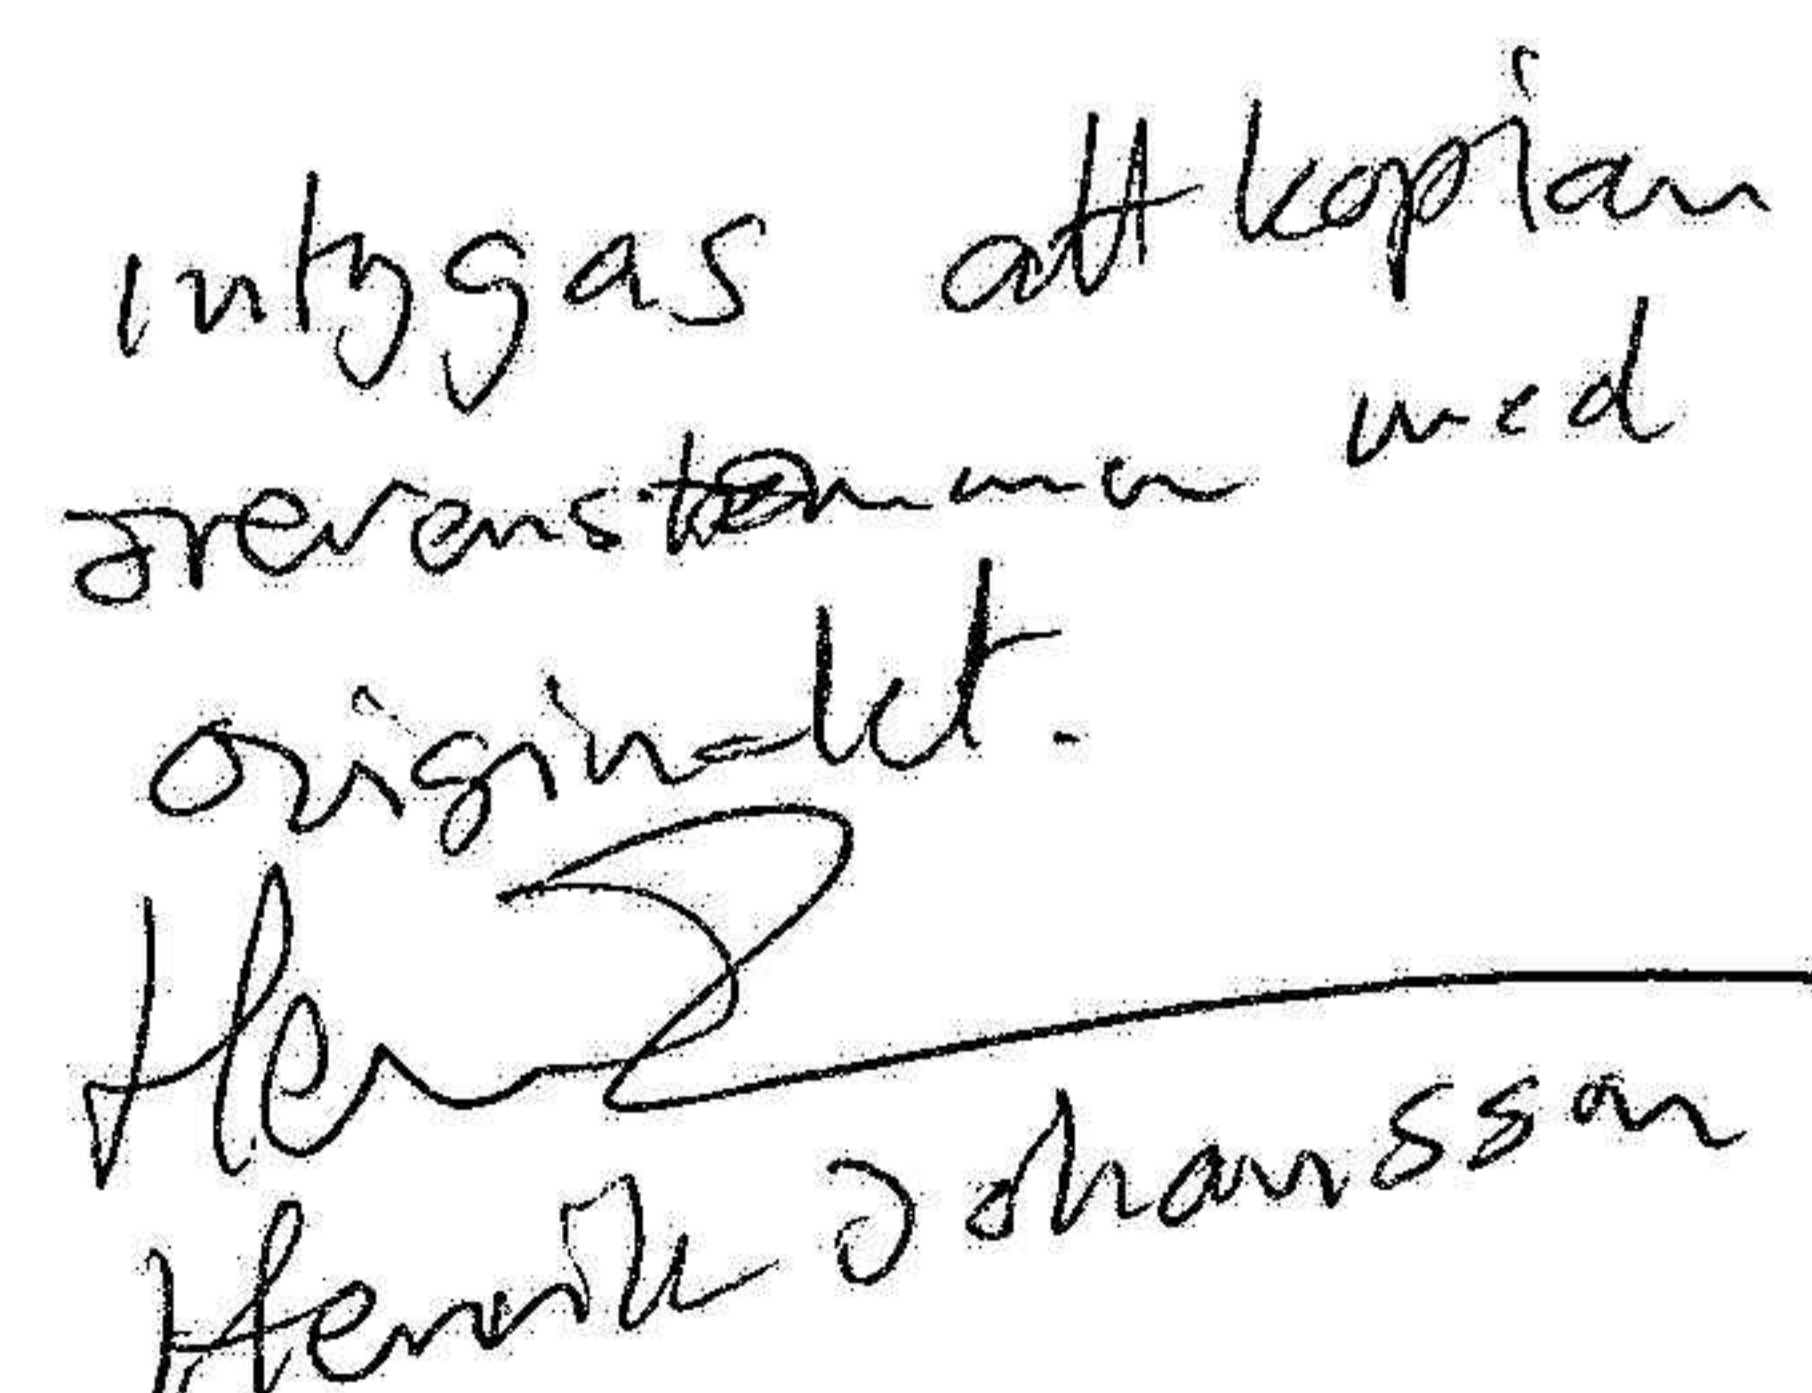 intygas att kopian
överenstemmer med
originalet.
Henrik Johansson